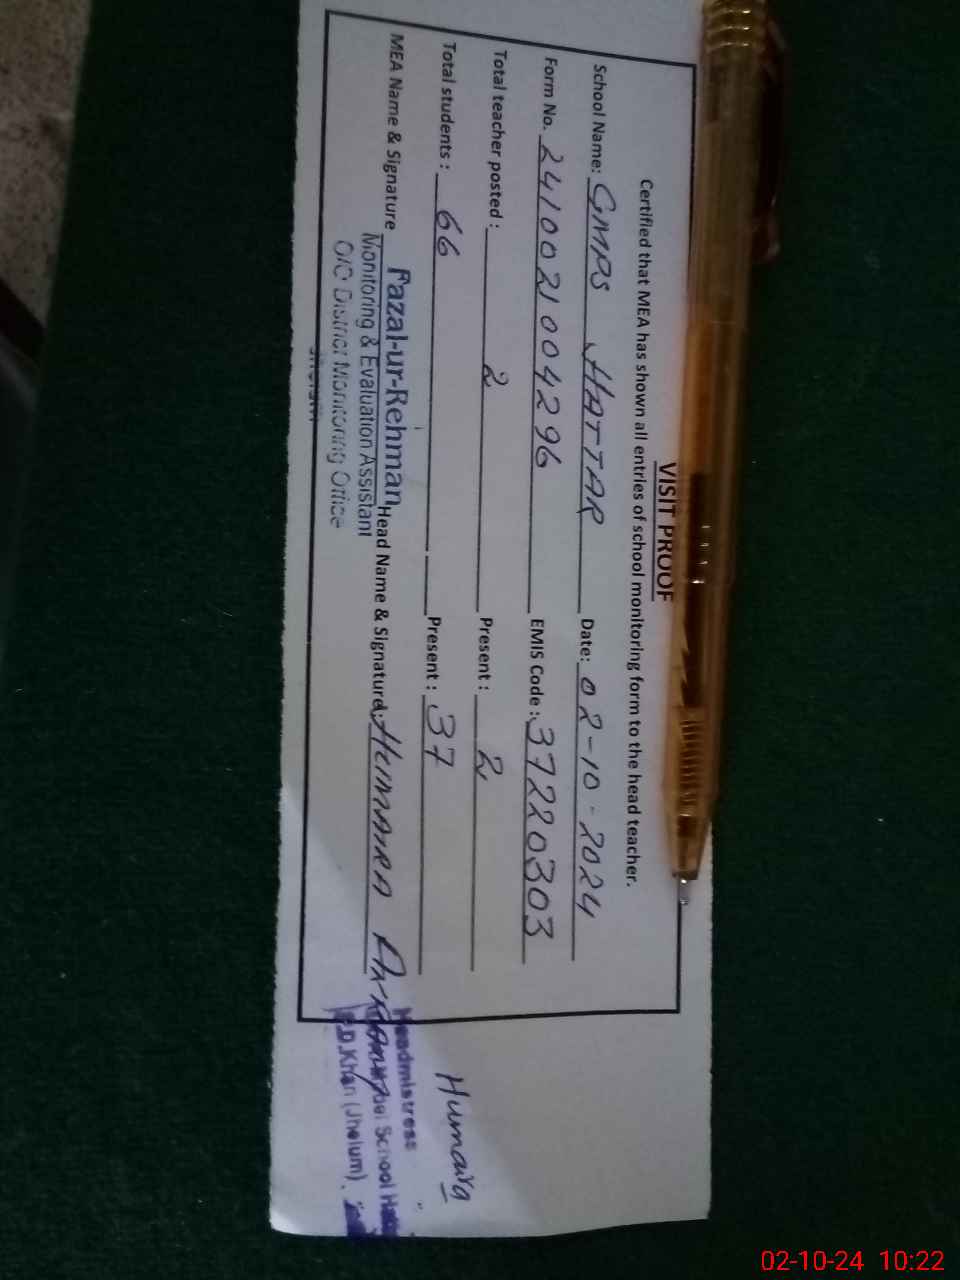 VISIT PROOF
Certified that MEA has shown all entries of school monitoring form to the head teacher.
School Name: GMPS HATTAR Date: 02-10-2024
Form No. 2410021004296 EMIS Code: 37220303
Total teacher posted: 2 Present: 2
Total students: 66 Present: 37
MEA Name & Signature Fazal-ur-Rehman Head Name & Signature: HUMAIRA
Monitoring & Evaluation Assistant
O/O District Monitoring Office
Jhelum
Humaira
Headmistress
School
P.D.Khan (Jhelum)
02-10-24 10:22